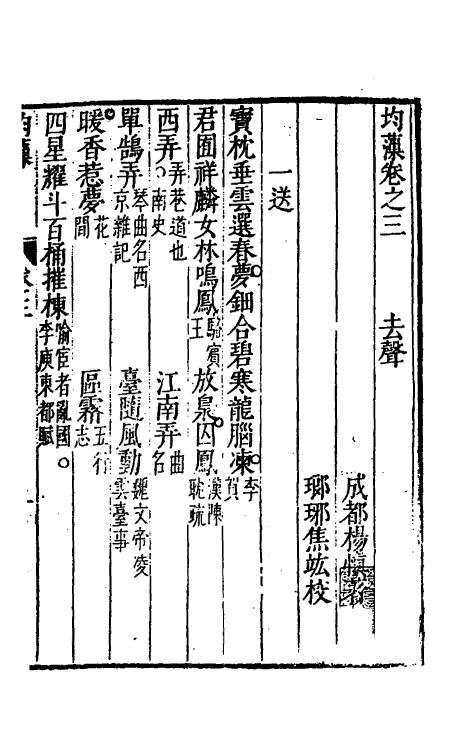 均藻卷之三　去聲
成都楊慎著
瑯琊焦竑校
一送
寶枕垂雲選春夢鈿合碧寒龍腦凍李賀
君囿祥麟女林鳴鳳駱賓王　放梟囚鳳漢陳耽疏
西弄弄巷道也南史　江南弄曲名
單鵠弄琴曲名西京雜記　臺隨風動魏文帝凌雲臺事
暖香惹夢花間　區霿五行志
四星耀斗百桶摧棟喻宦者亂國李庾東都賦